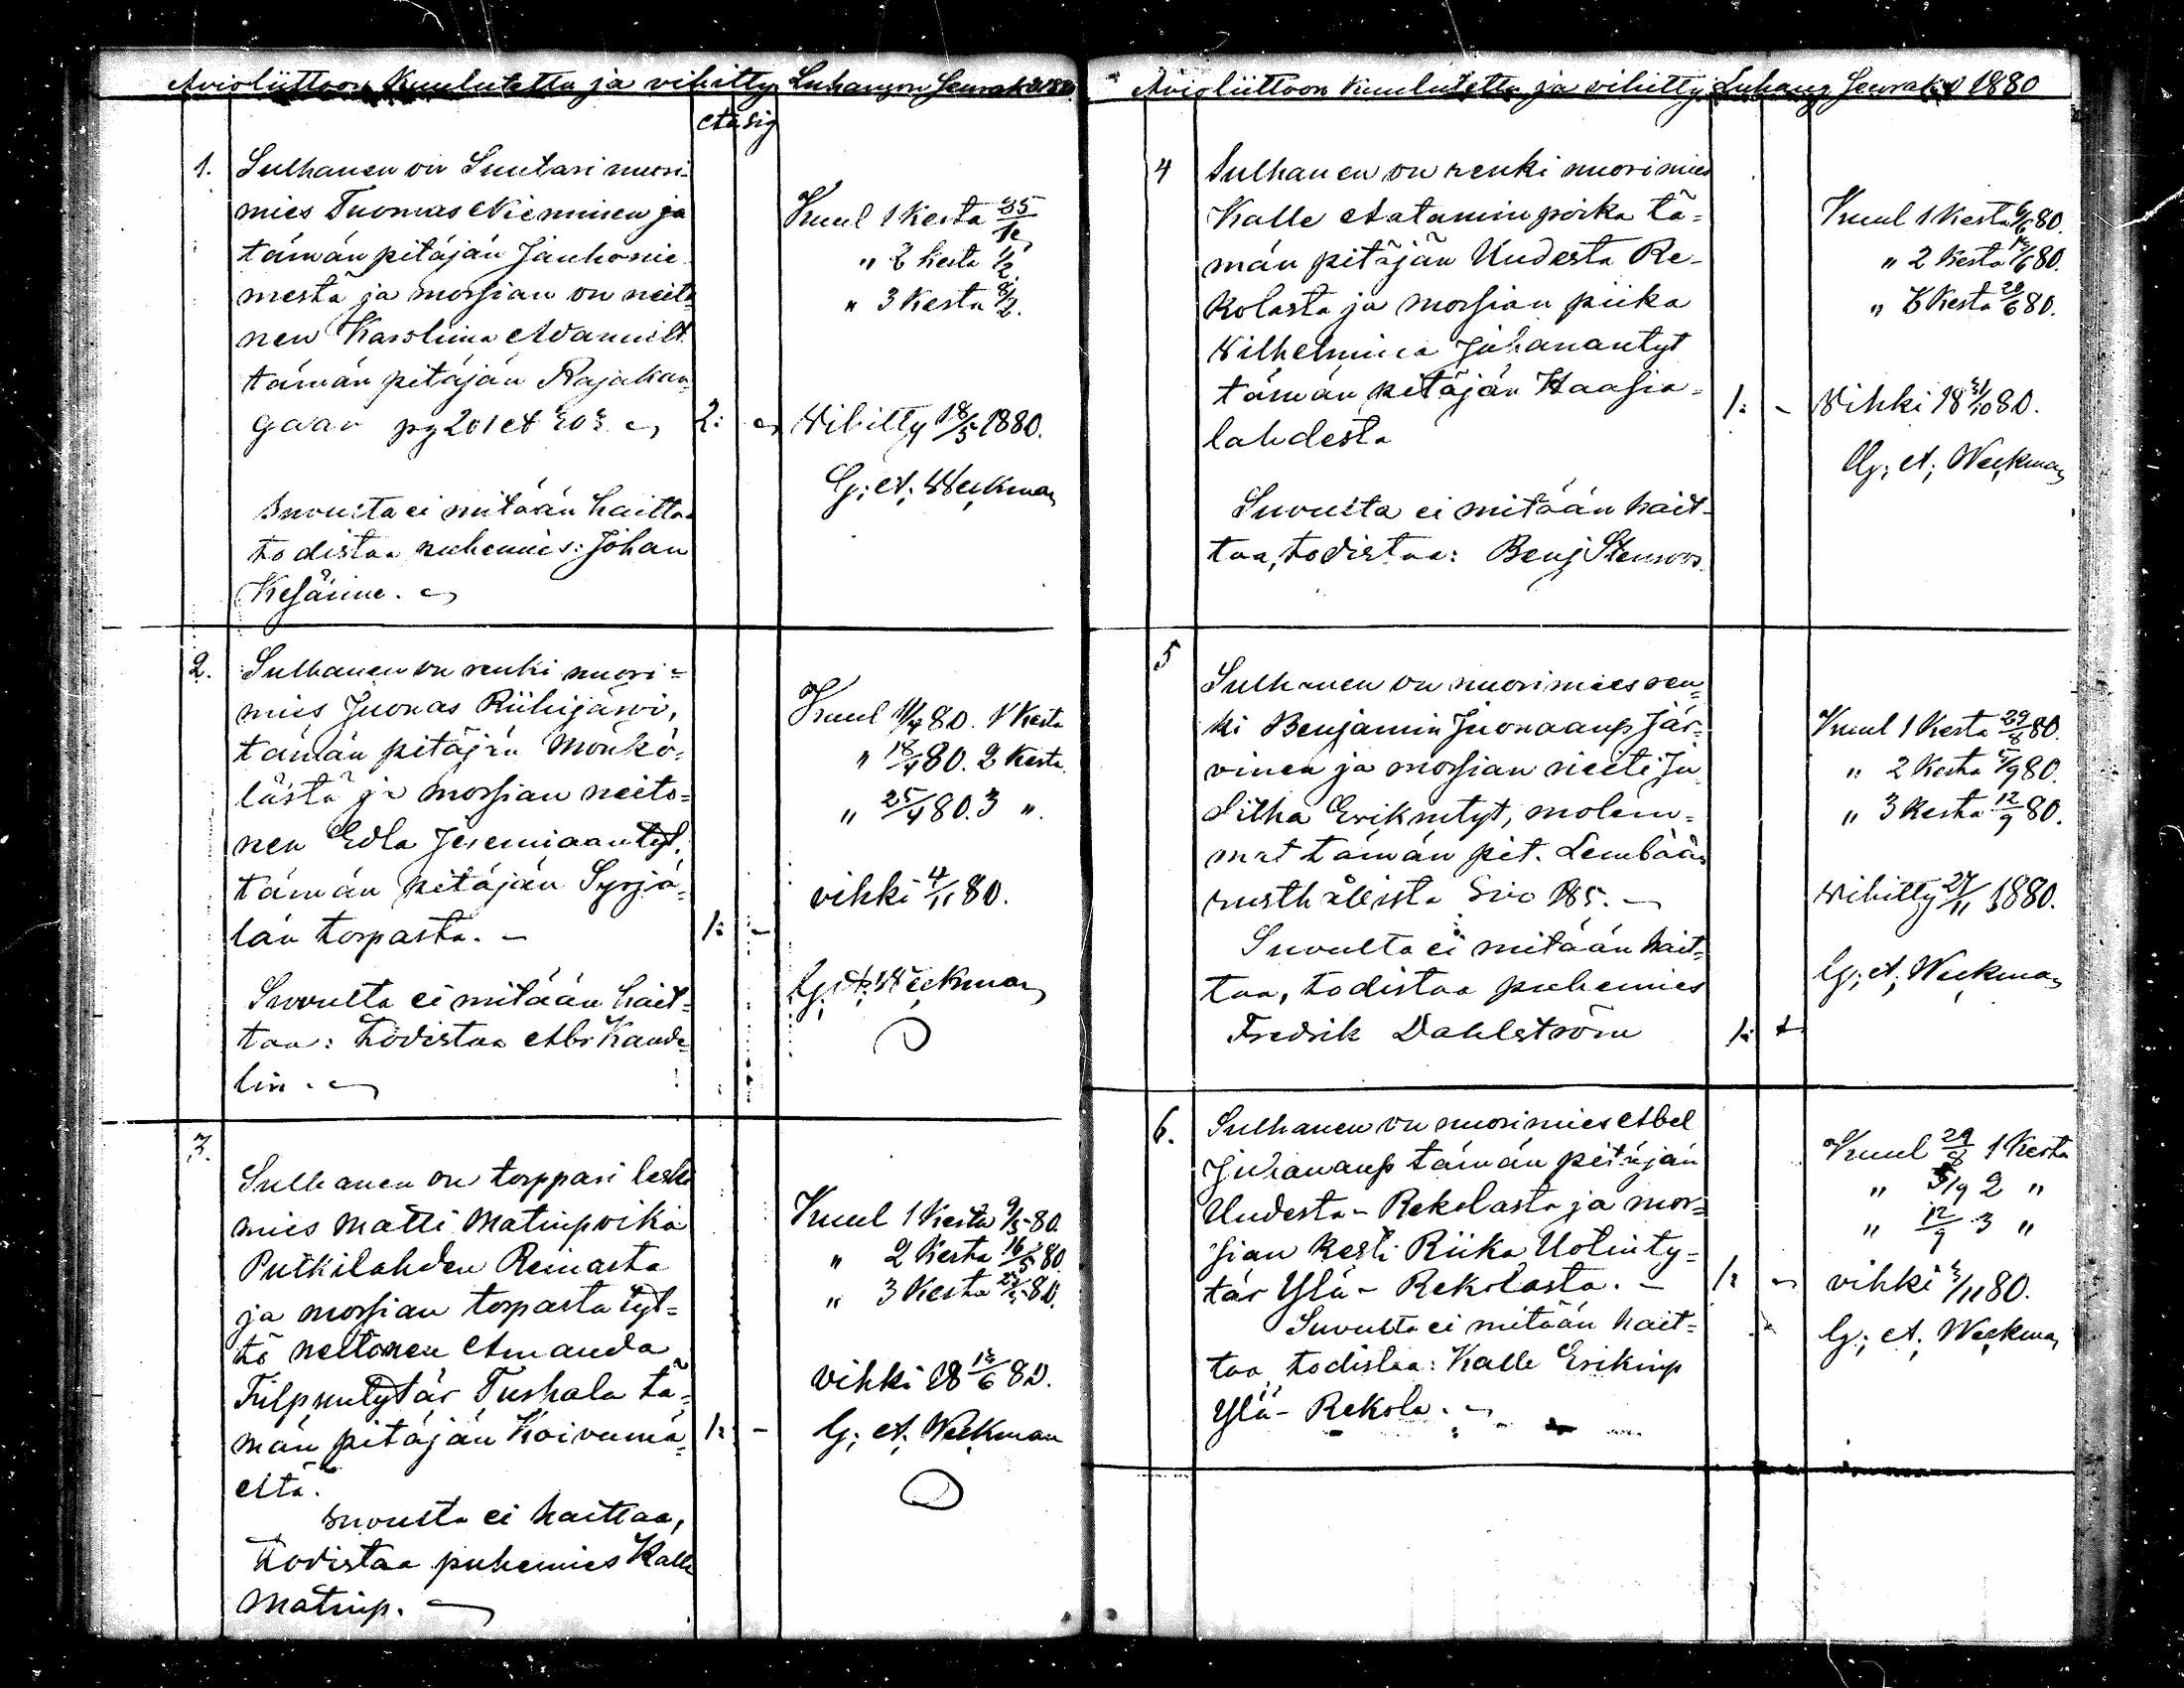 Avioliittoon Kuulutettu ja vihitty Luhangon Seurak
1.
Sulhanen on Suutari nuori-
mies Tuomas Nieminen ja
tämän pitäjän Jänhönie
mestä ja morsian on neito
nen Karoliina
tämän pitäjän Rajakan
gaan pg 201
2:
Suvusta ei mitään haittaa
todistaa puhemies: Johan
Kesänne.
Kuul 1 Kerta 25/1
" 2 Kerta 1/2
" 3 Kerta 8/2.
Vihitty 18/5 1880.
G: A: Weckman
2.
Sulhanen on renki nuori=
mies Juonas Riihijärvi,
tämän pitäjän Mönkö-
lästä ja morsian neito=
nen Edla Jeremiaantyt.
tämän pitäjän Syrjä-
län torpasta. -
1: -
Suvulta ei mitään hait=
taa: todistaa Abr Kande
lin.
Kuul 11/4 80. 1 Kerta
" 18/4 80. 2 Kerta.
" 25/4 80. 3 ".
vihki 4/11 80.
G: A: Weckman
3.
Sulhanen on torppari leski
mies Matti Matinpoika
Putkilahden Reinasta
ja morsian torpasta tyt=
tö neitonen Amanda
Filpuntytär Tushala tä=
män pitäjän Koivumä=
eltä.
1: -
Suvusta ei haittaa,
todistaa puhemies Kalle
Matinp.
Kuul 1 Kerta 9/5 80.
" 2 Kerta 16/5 80.
" 3 Kerta 80.
vihki 18 /6 80.
G: A: Weckman
Avioliittoon Kuulutettu ja vihitty Luhang Seurak 1880
4
Sulhanen on renki nuorimies
Kalle Aatamin poika tä=
män pitäjän Uudesta Re-
kolasta ja morsian piika
Vilhelmiina Juhanantyt
tämän pitäjän Haasia=
lahdesta
1: -
Suvulta ei mitään hait-
taa, todistaa: Benj Stenroos.
Kuul 1 Kerta 6/6 80.
" 2 Kerta /6 80.
" 3 Kerta 20/6 80.
Vihki 18 31/10 80.
G: A: Weckman
5
Sulhanen on nuorimies ren=
ki Benjamin Juonaanp Jär=
vinen ja morsian neeti Ju
ditha Erikntyt, molem=
mat tämän pit. Lembään
rusthållista Sivo 185. -
Suvulta ei mitään hait=
taa, todistaa puhemies
Fredrik Dahlström
1:
Kuul 1 Kerta 29/8 80.
" 2 Kerta 5/9 80.
" 3 Kerta 12/9 80.
Vihitty 27/11 1880.
G: A: Weckman
6.
Sulhanen on nuorimies Abel
Juhananp tämän pitäjän
Uudesta-Rekolasta ja mor=
sian leski Riika Uotinty=
tär Ylä-Rekolasta. -
1: -
Suvulta ei mitään hait=
taa todistaa: Kalle Erikinp
Ylä-Rekola.
Kuul 29/8 1 Kerta
" 5/9 2 "
" 12/9 3 "
vihki /11 80.
G: A: Weckman